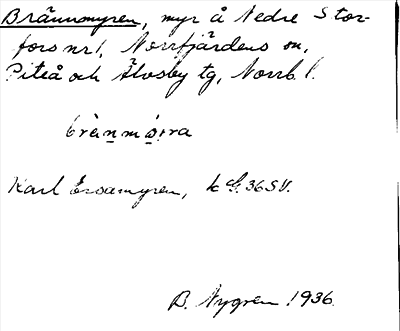 Brännmyren, myr å Nedre Stor-
fors nr 1, Norrfjärdens sn,
Piteå och Älvsby tg, Norrb. l.
Karl Ersamyren, k
B. Nygren 1936.